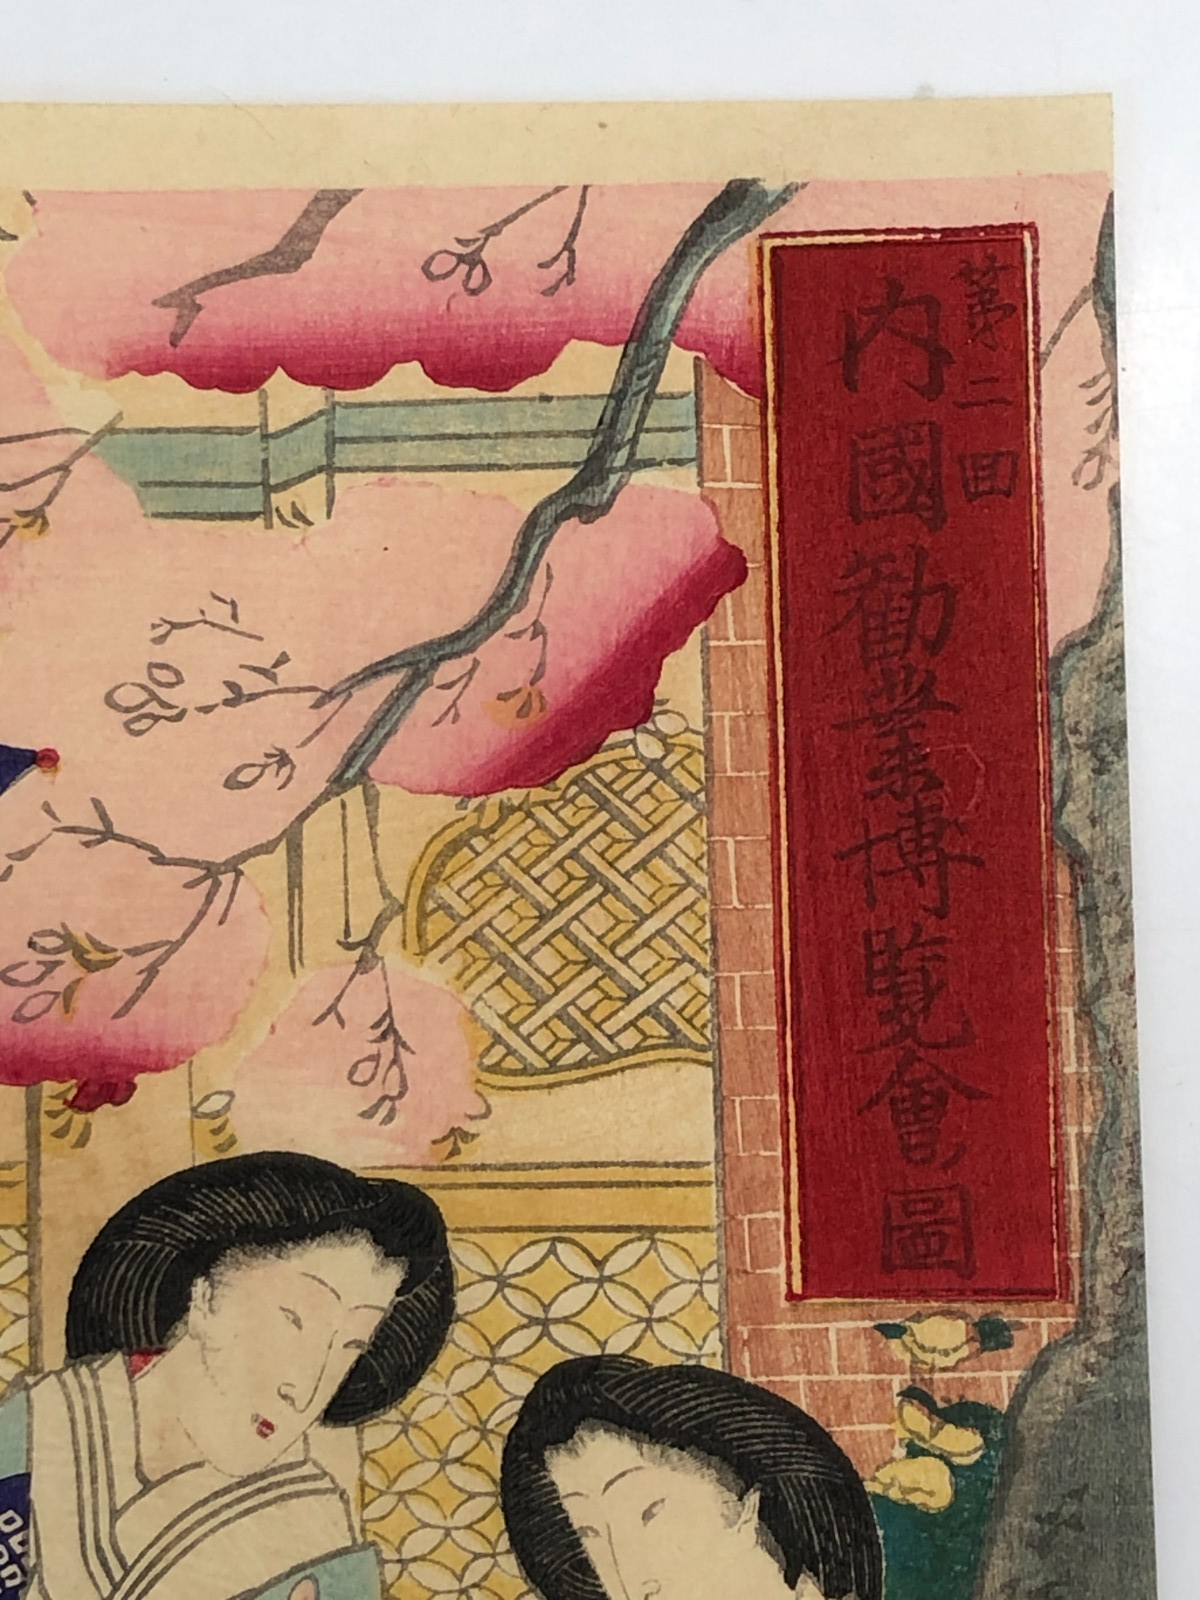 第二回
内國勧業博覧會圖